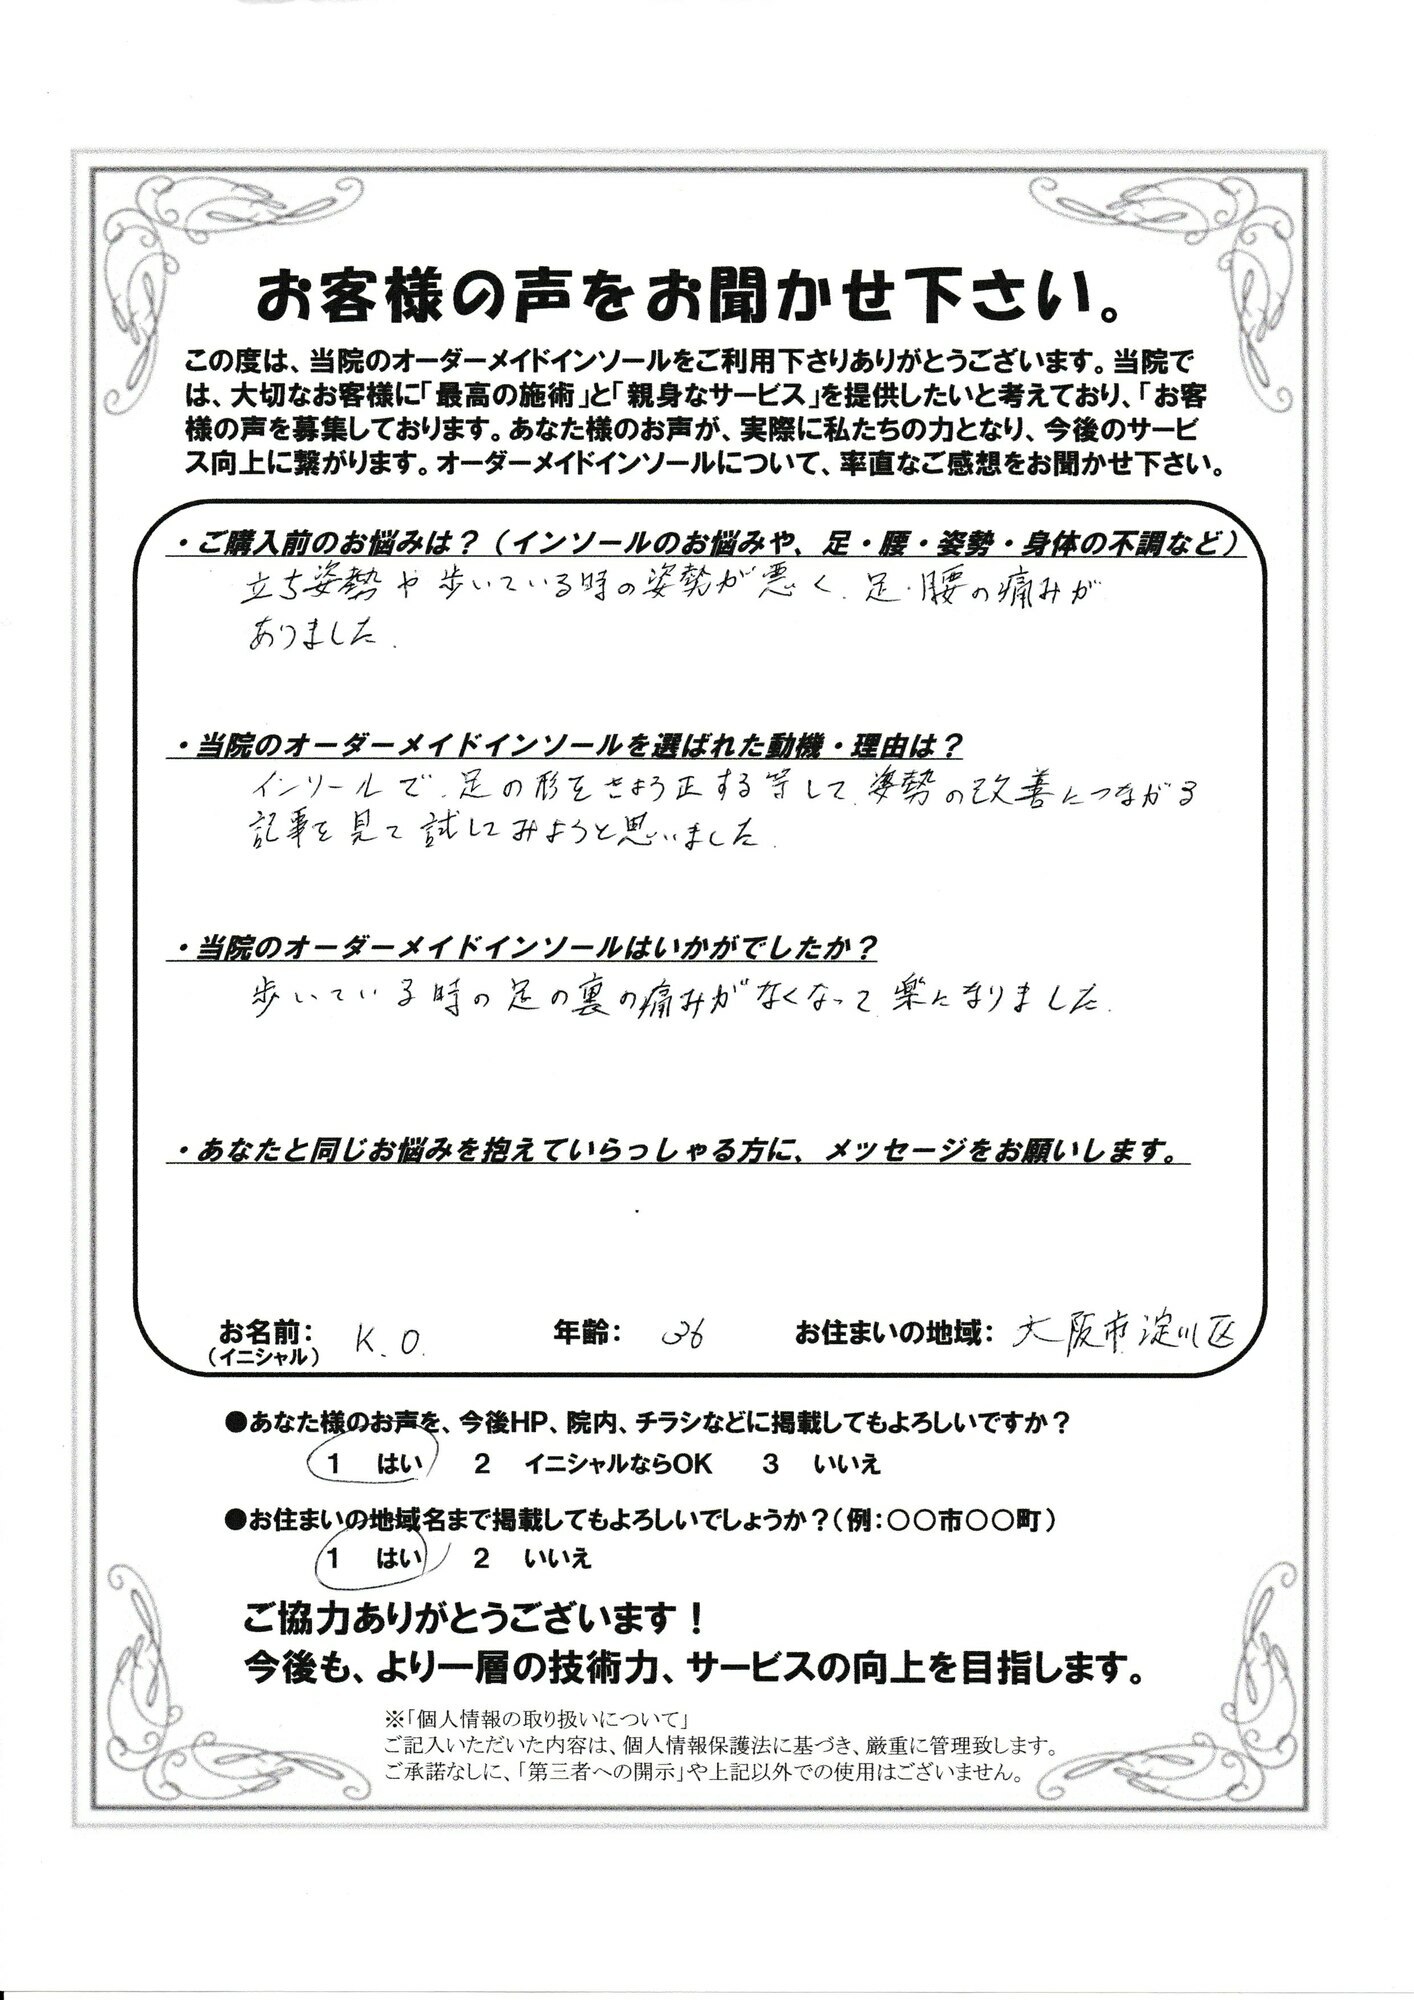 お客様の声をお聞かせ下さい。
この度は、当院のオーダーメイドインソールをご利用下さりありがとうございます。当院で
は、大切なお客様に「最高の施術」と「親身なサービス」を提供したいと考えており、「お客
様の声を募集しております。あなた様のお声が、実際に私たちの力となり、今後のサービ
ス向上に繋がります。オーダーメイドインソールについて、率直なご感想をお聞かせ下さい。
・ご購入前のお悩みは?(インソールのお悩みや、足・腰・姿勢・身体の不調など)
立ち姿勢や歩いている時の姿勢が悪く、足・腰の痛みが
ありました.
・当院のオーダーメイドインソールを選ばれた動機・理由は?
インソールで、足の形をきょう正する等して、姿勢の改善につながる
記事を見て試してみようと思いました.
・当院のオーダーメイドインソールはいかがでしたか?
歩いている時の足の裏の痛みがなくなって、楽になりました.
・あなたと同じお悩みを抱えていらっしゃる方に、メッセージをお願いします。
お名前: K.O. 年齢: 36 お住まいの地域: 大阪市淀川区
(イニシャル)
●あなた様のお声を、今後HP、院内、チラシなどに掲載してもよろしいですか?
1 はい 2 イニシャルならOK 3 いいえ
●お住まいの地域名まで掲載してもよろしいでしょうか?(例:○○市○○町)
1 はい 2 いいえ
ご協力ありがとうございます!
今後も、より一層の技術力、サービスの向上を目指します。
※「個人情報の取り扱いについて」
ご記入いただいた内容は、個人情報保護法に基づき、厳重に管理致します。
ご承諾なしに、「第三者への開示」や上記以外での使用はございません。